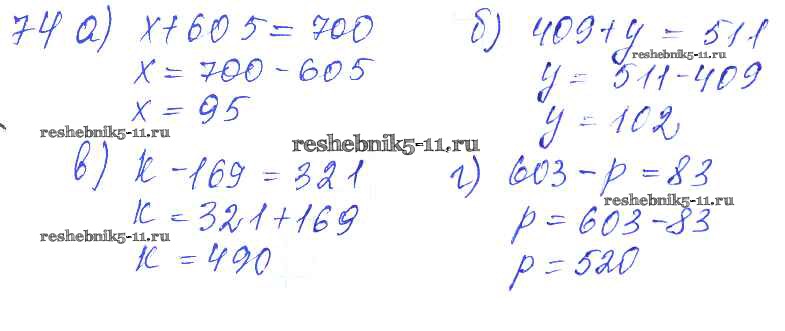 74 а) x+605=700
x=700-605
x=95
б) 409+y=511
y=511-409
y=102
в) к-169=321
к=321+169
к=490
г) 603-p=83
p=603-83
p=520
reshebnik5-11.ru
reshebnik5-11.ru
reshebnik5-11.ru
reshebnik5-11.ru
reshebnik5-11.ru